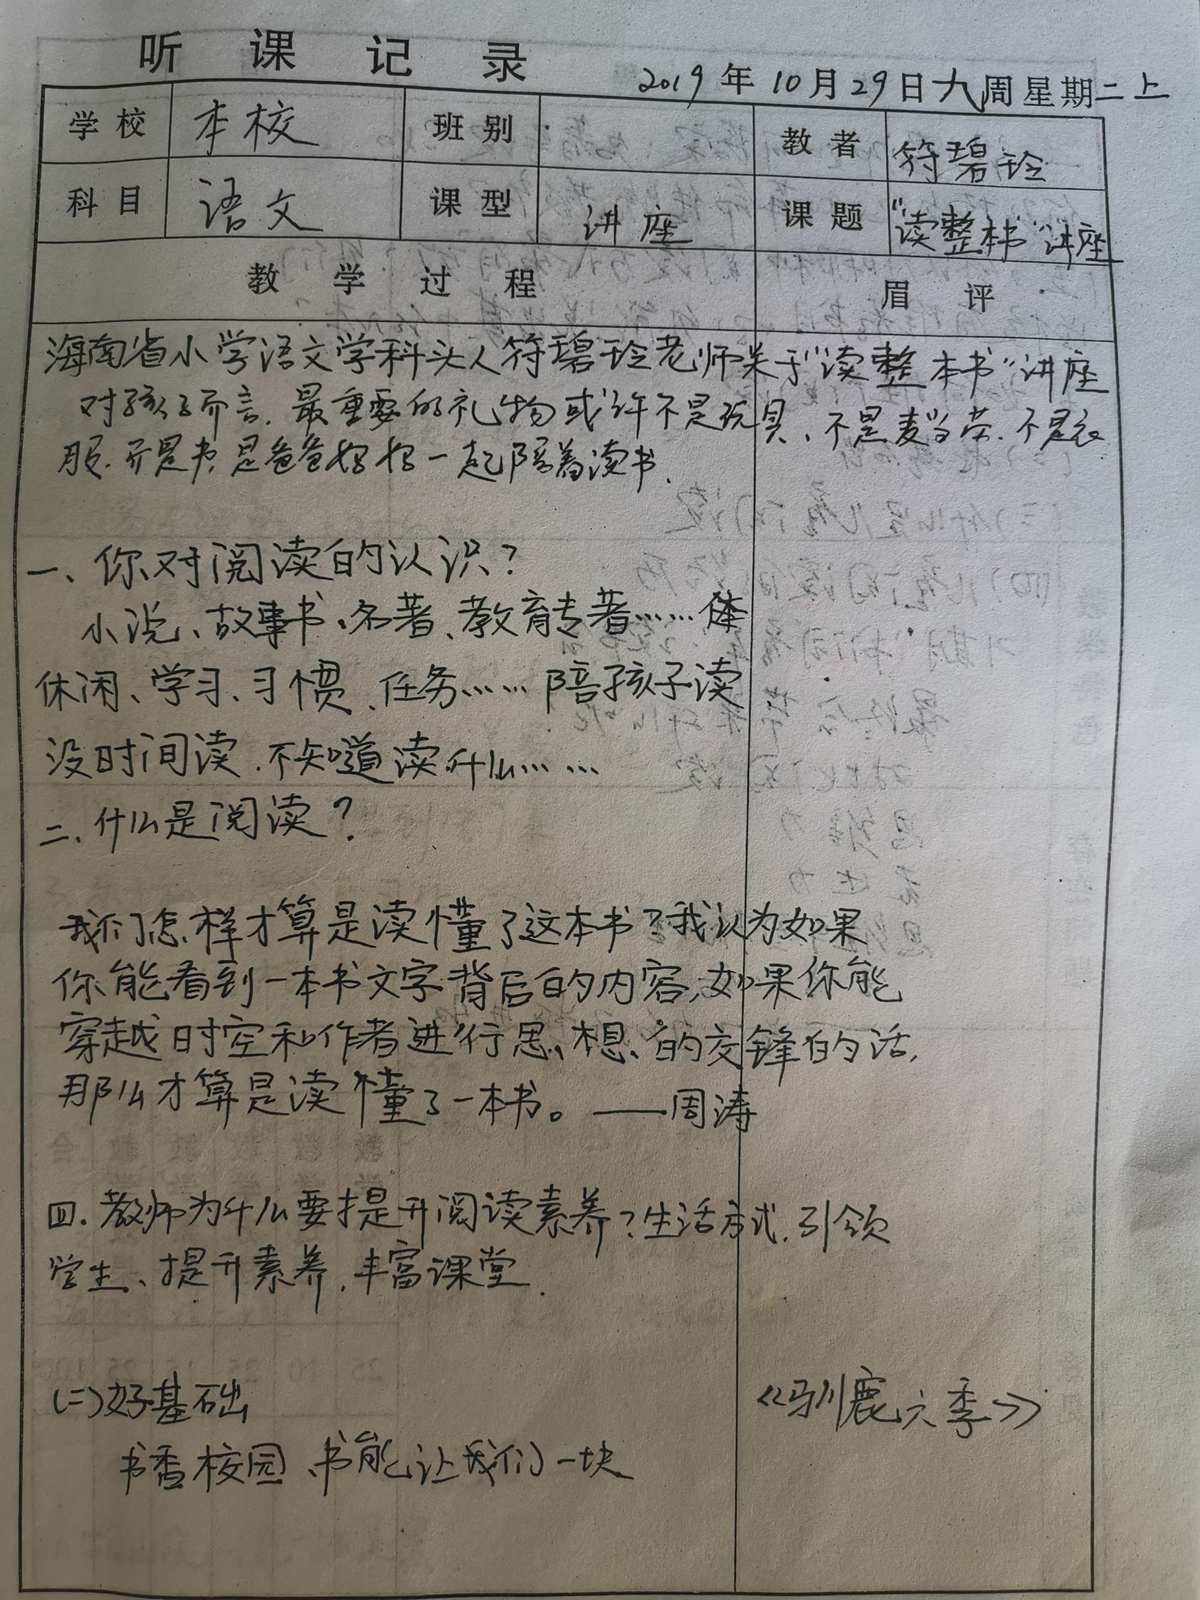 听课记录
2019年10月29日九周星期二上
学校 本校 班别 教者 符碧玲
科目 语文 课型 讲座 课题 "读整本书"讲座
教学过程 眉评
海南省小学语文学科头人符碧玲老师关于"读整本书"讲座
对孩子而言,最重要的礼物或许不是玩具、不是麦当劳、不是衣
服,而是书,是爸爸妈妈一起陪着读书.
一、你对阅读的认识?
小说、故事书、名著、教育专著……体
休闲、学习、习惯、任务……陪孩子读
没时间读、不知道读什么……
二、什么是阅读?
我们怎样才算是读懂了这本书?我认为如果
你能看到一本书文字背后的内容,如果你能
穿越时空和作者进行思想的交锋的话,
那么才算是读懂了一本书。——周涛
四.教师为什么要提升阅读素养?生活方式,引领
学生、提升素养,丰富课堂.
(二)好基础
《驯鹿六季》
书香校园、书能让我们一块